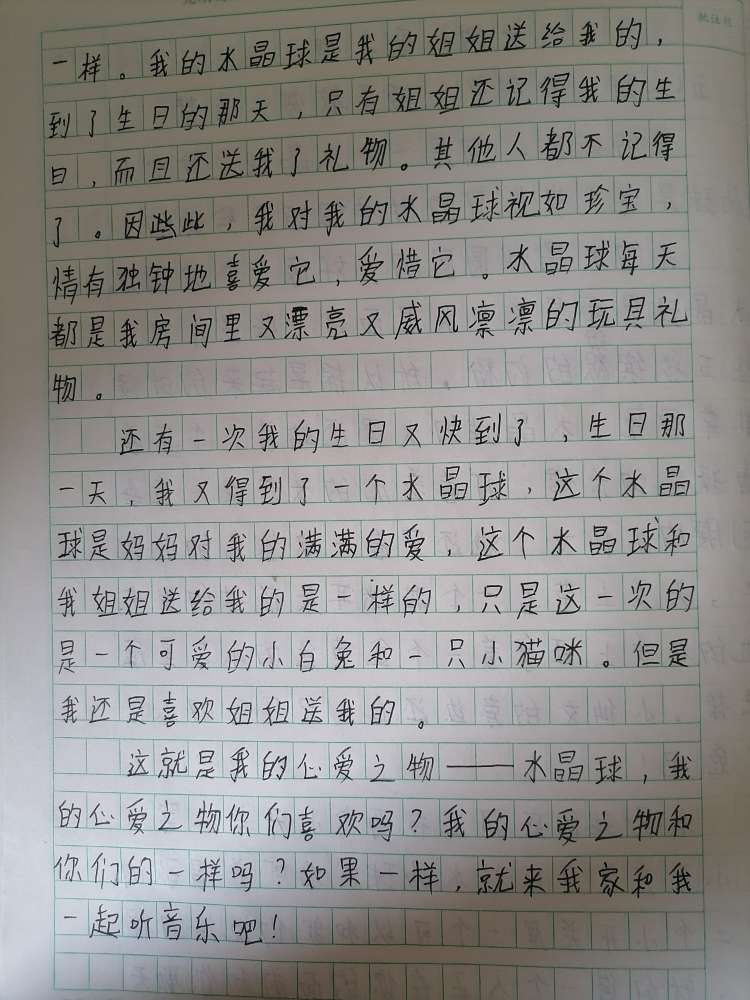 一样。我的水晶球是我的姐姐送给我的，
到了生日的那天，只有姐姐还记得我的生
日，而且还送我了礼物。其他人都不记得
了。因些此，我对我的水晶球视如珍宝，
情有独钟地喜爱它，爱惜它。水晶球每天
都是我房间里又漂亮又威风凛凛的玩具礼
物。
还有一次我的生日又快到了，生日那
一天，我又得到了一个水晶球，这个水晶
球是妈妈对我的满满的爱，这个水晶球和
我姐姐送给我的是一样的，只是这一次的
是一个可爱的小白兔和一只小猫咪。但是
我还是喜欢姐姐送我的。
这就是我的心爱之物——水晶球，我
的心爱之物你们喜欢吗？我的心爱之物和
你们的一样吗？如果一样，就来我家和我
一起听音乐吧！